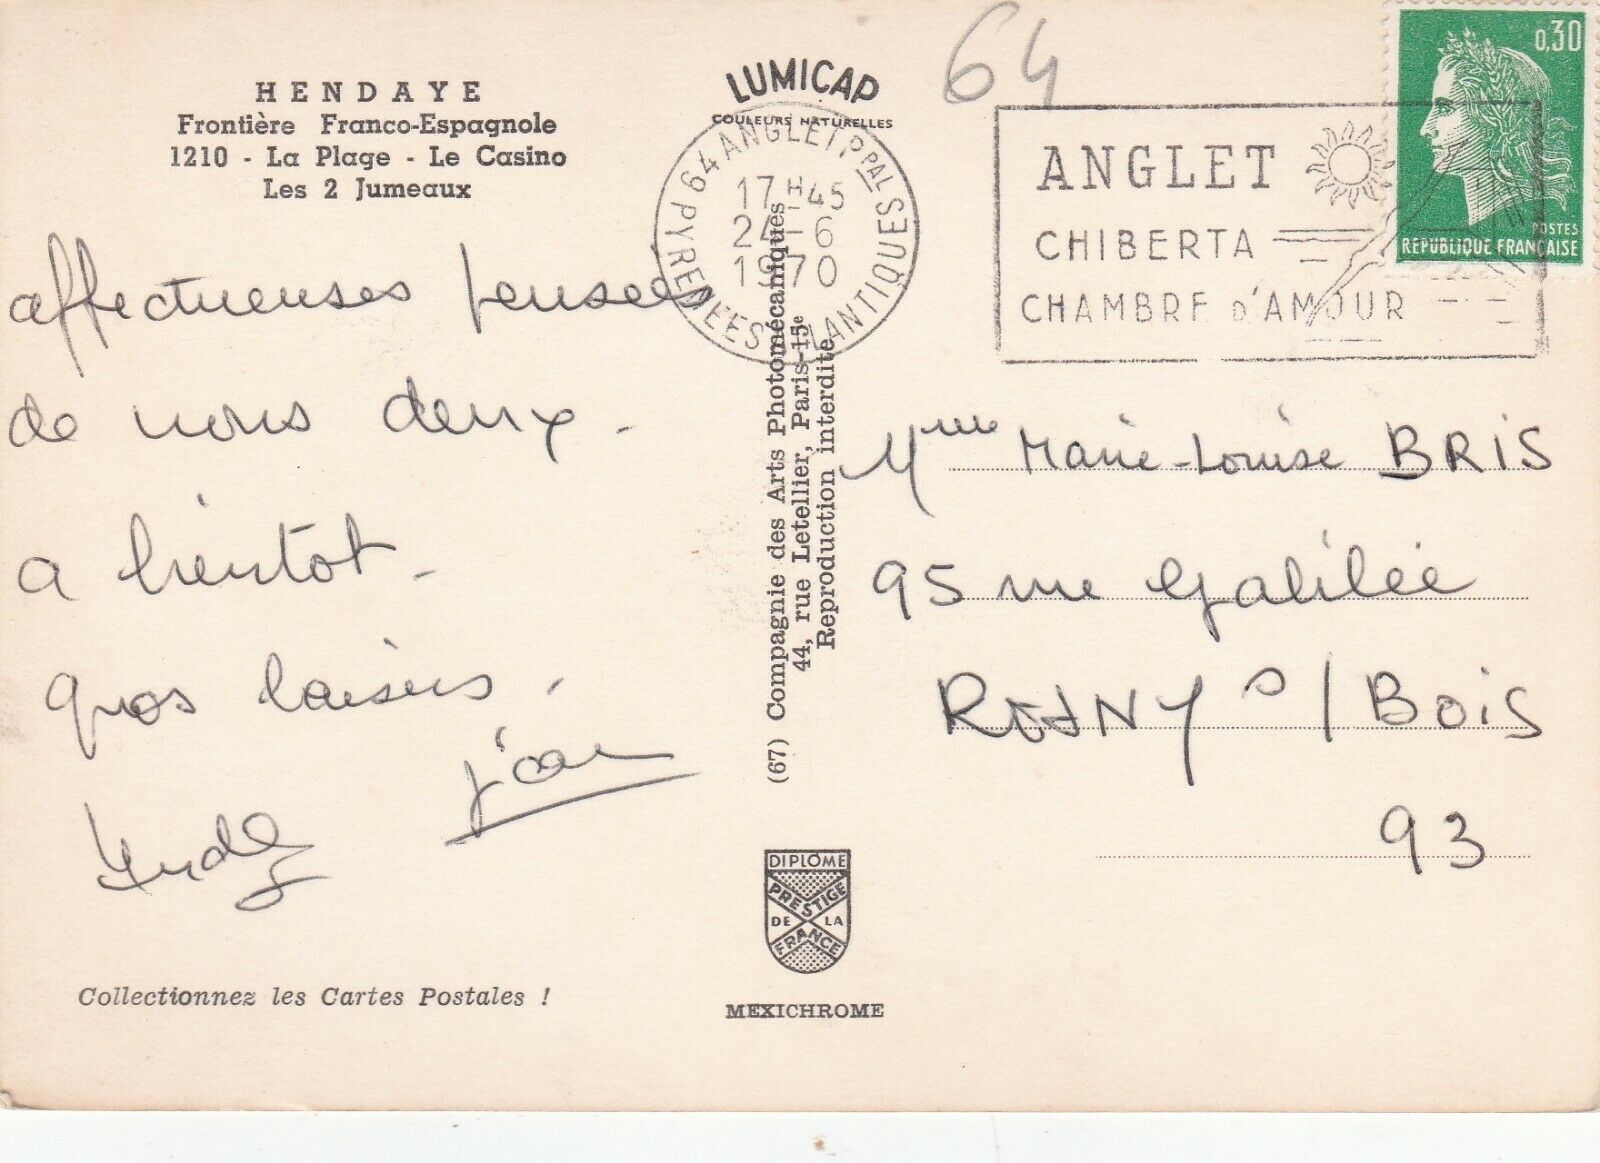 HENDAYE
Frontière Franco-Espagnole
1210 - La Plage - Le Casino
Les 2 Jumeaux
affectueuses pensées
de nous deux.
a bientot.
gros baisers.
jean
Collectionnez les Cartes Postales !
LUMICAP
COULEURS NATURELLES
64 ANGLET PPAL
17H45
24-6
1970
PYRENEES ATLANTIQUES
(67) Compagnie des Arts Photomécaniques
44, rue Letellier, Paris-15e
Reproduction interdite
DIPLÔME
PRESTIGE
DE LA
FRANCE
MEXICHROME
64
ANGLET
CHIBERTA
CHAMBRE D'AMOUR
0,30
POSTES
REPUBLIQUE FRANÇAISE
Mme Marie-Louise BRIS
95 rue Galilée
ROSNY s/ BOIS
93